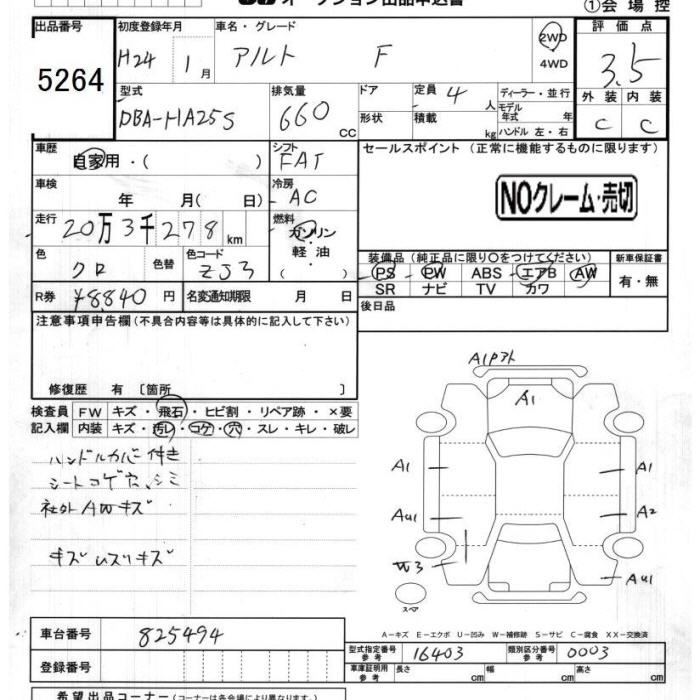 オークション出品申込書
①会場控
出品番号 初度登録年月 車名・グレード 評価点
5264 H24 1月 アルト F 2WD 4WD 3.5
型式 排気量 ドア 定員 4人 ディーラー・並行 外装 内装
DBA-HA25S 660 cc 形状 積載 kg モデル年式 年 ハンドル 左・右 C C
車歴 自家用・( ) シフト FAT セールスポイント(正常に機能するものに限ります)
車検 年 月( 日) 冷房 AC NOクレーム・売切
走行 20万3千278km 燃料 ガソリン・軽油・( )
色 クロ 色替 色コード ZJ3
装備品(純正品に限り○をつけてください) 新車保証書
PS PW ABS エアB AW 有・無
SR ナビ TV カワ
R券 ¥8,840円 名変通知期限 月 日 後日品
注意事項申告欄(不具合内容等は具体的に記入して下さい)
修復歴 有 〔箇所 〕
検査員 FW キズ・飛石・ヒビ割・リペア跡・×要
記入欄 内装 キズ・汚レ・コゲ・穴・スレ・キレ・破レ
ハンドルカバー付き
シートコゲ穴、シミ
社外AWキズ
キズ
A1
A1
A1
A1
A2
AU1
W3
AU1
スペア
A-キズ E-エクボ U-凹み W-補修跡 S-サビ C-腐食 XX-交換済
車台番号 825494
型式指定番号 参考 16403 類別区分番号 参考 0003
登録番号
車庫証明用 参考 長さ cm 幅 cm 高さ cm
希望出品コーナー(コーナーは各会場により異なります)